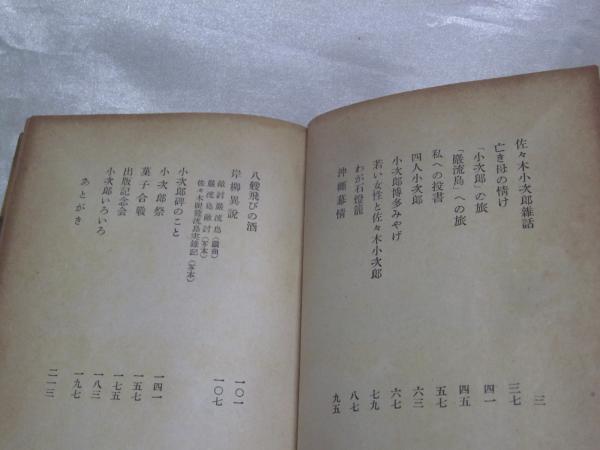 佐々木小次郎雜話 三
亡き母の情け 三七
「小次郎」の旅 四一
「巖流島」への旅 四五
私への投書 五七
四人小次郎 六三
小次郎博多みやげ 六七
若い女性と佐々木小次郎 七九
わが石燈籠 八七
沖縄慕情 九五
八艘飛びの酒 一〇一
岸柳異説 一〇七
敵討巖流島
巖流島敵討(写本)
佐々木流島実録記(写本)
小次郎碑のこと 一四一
小次郎祭 一五七
菓子合戦 一七五
出版記念会 一八三
小次郎いろいろ 一九七
あとがき 二一三